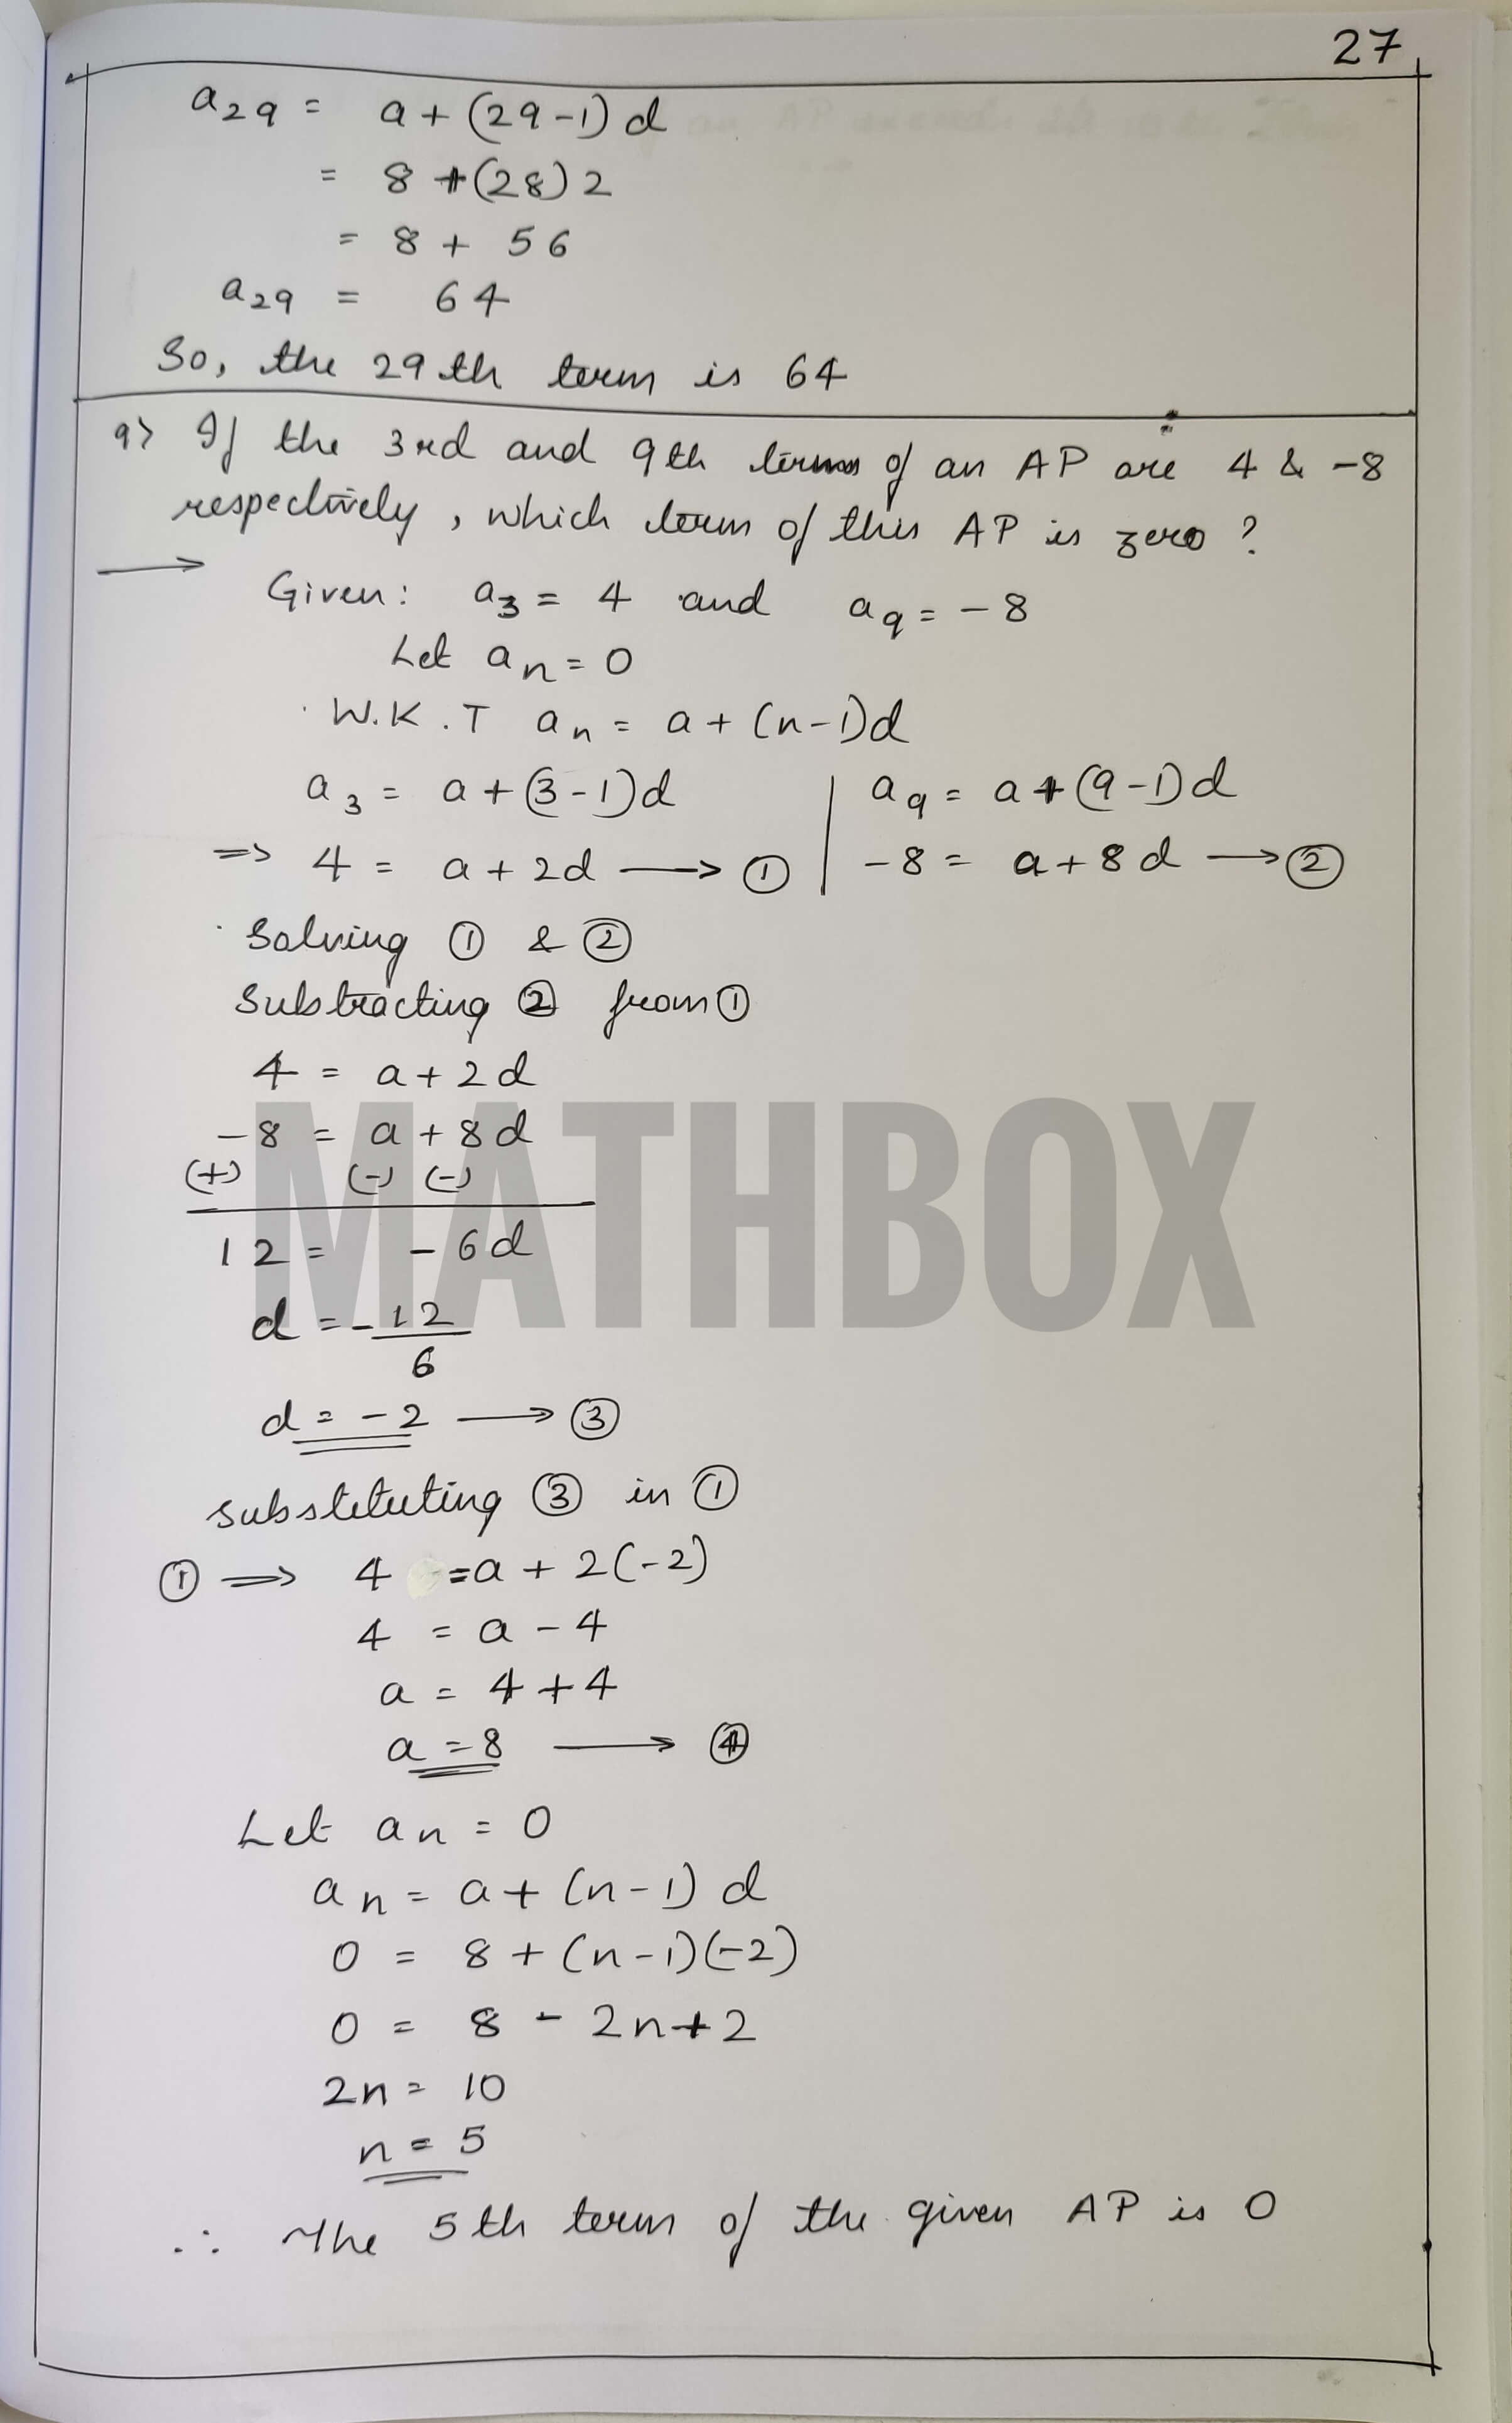 27
a₂₉ = a + (29-1) d
= 8 + (28) 2
= 8 + 56
a₂₉ = 64
So, the 29th term is 64
9> If the 3rd and 9th terms of an AP are 4 & -8
respectively, which term of this AP is zero ?
→
Given: a₃ = 4 and a₉ = -8
Let aₙ = 0
W.K.T aₙ = a + (n-1)d
a₃ = a + (3-1)d | a₉ = a + (9-1)d
=> 4 = a + 2d → ① | -8 = a + 8d → ②
Solving ① & ②
Subtracting ② from ①
4 = a + 2d
-8 = a + 8d
(+) (-) (-)
12 = - 6d
d = -12/6
d = -2 → ③
substituting ③ in ①
① => 4 = a + 2(-2)
4 = a - 4
a = 4 + 4
a = 8 → ④
Let aₙ = 0
aₙ = a + (n-1) d
0 = 8 + (n-1)(-2)
0 = 8 - 2n + 2
2n = 10
n = 5
∴ The 5th term of the given AP is 0
MATHBOX